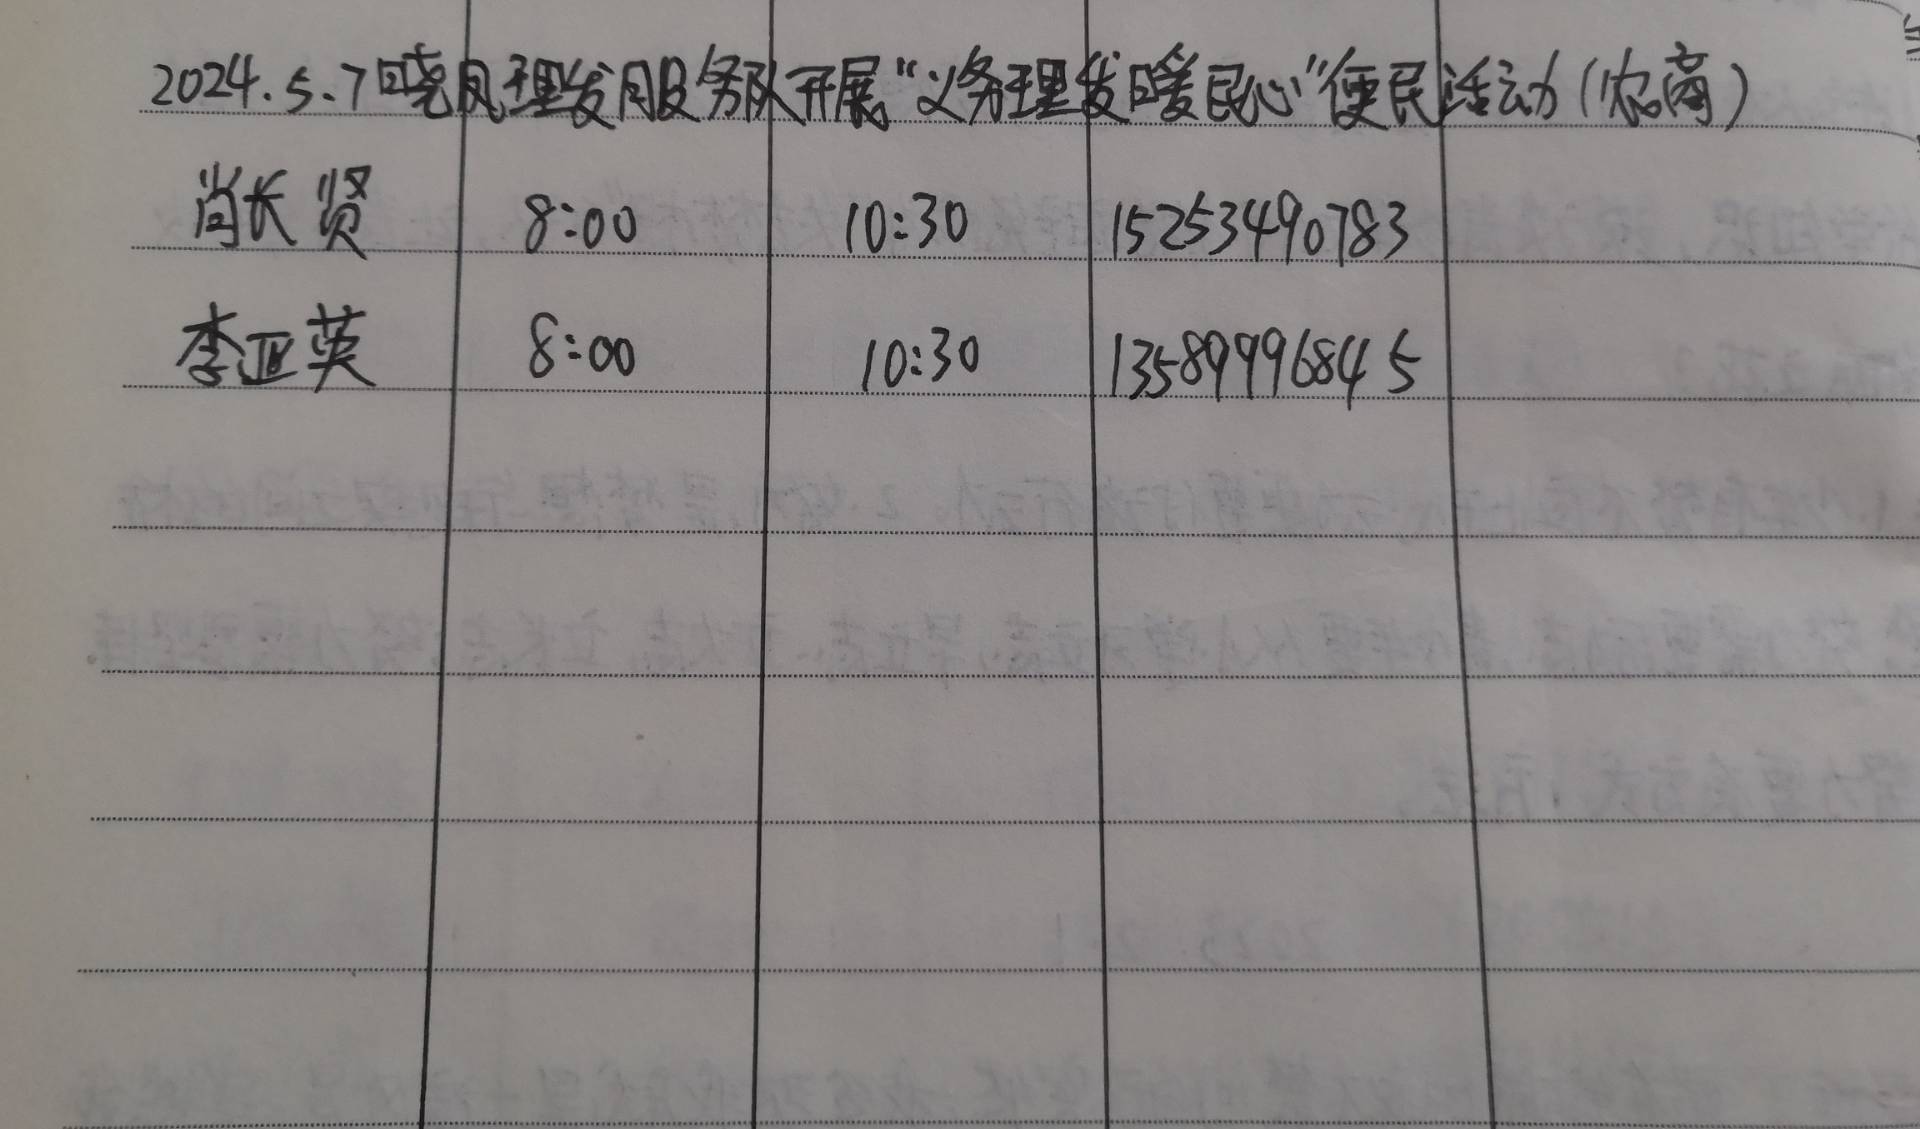 2024.5.7晓凤理发服务队开展“义务理发暖民心”便民活动(农商)
肖长贤 8:00 10:30 15253490783
李亚英 8:00 10:30 13589996845